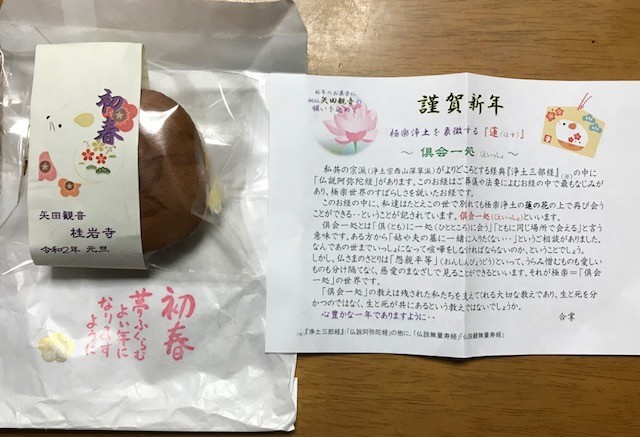 初春
矢田観音
桂岩寺
令和2年 元旦
初春
夢ふくらむ
よい年に
なりますように
新年のお菓子に
矢田観音の
願いを込めて
謹賀新年
極楽浄土を表徴する『蓮(はす)』
～ 俱会一処(くえいっしょ) ～
私共の宗派(浄土宗西山深草派)がよりどころとする経典『浄土三部経』(※)の中に
「仏説阿弥陀経」があります。このお経はご葬儀や法要によむお経の中で最もなじみがあ
り、極楽世界のすばらしさを説いたお経です。
このお経の中に、私達はたとえこの世で別れても極楽浄土の蓮の花の上で再び会う
ことができる・・ということが記されています。俱会一処(くえいっしょ)といいます。
俱会一処とは「俱(とも)に一処(ひとところ)に会う」「ともに同じ場所で会える」と言う
意味です。ある方から「姑や夫の墓に一緒に入りたくない・・」というご相談がありました。
なんであの世までいっしょになって喧嘩をしなければならないのか、ということでしょう。
しかし、仏さまのさとりは「怨親平等」(おんしんびょうどう)といって、うらみ憎むものも愛しい
ものも分け隔てなく、慈愛のまなざしで見ることができるといいます。それが極楽=「俱会
一処」の世界です。
「俱会一処」の教えは残された私たちを支えてくれる大切な教えであり、生と死を分
かつのではなく、生と死が共にあるという教えではないでしょうか。
心豊かな一年でありますように・・
合掌
(※)『浄土三部経』:「仏説阿弥陀経」の他に、「仏説無量寿経」「仏説観無量寿経」